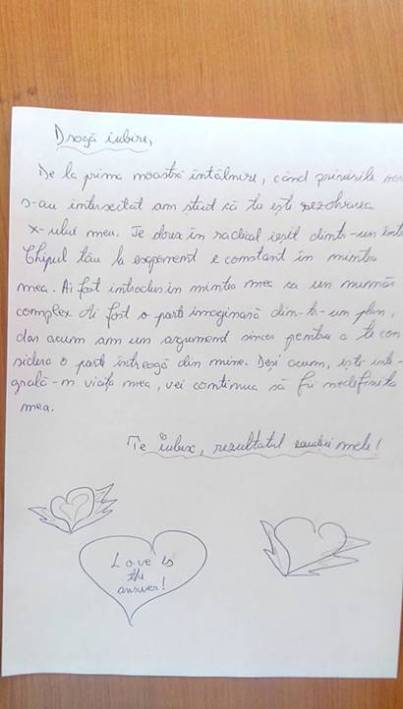 Dragă iubire,
De la prima noastră întâlnire, când privirile
s-au intersectat am știut că tu ești rezolvarea
x-ului meu. Te doux în radical ieșit dintr-un
Chipul tău la exponent e constant în mintea
mea. Ai fost introdus în mintea mea ca un număr
complex. Ai fost o parte imaginară din-tr-un plan,
dar acum am un argument sincer pentru a te con
sidera o parte întreagă din mine. Deși acum, ești inte-
grală-n viața mea, vei continua să fii nedefinita
mea.
Te iubesc, rezultatul ecuației mele!
Love is
the
answer!